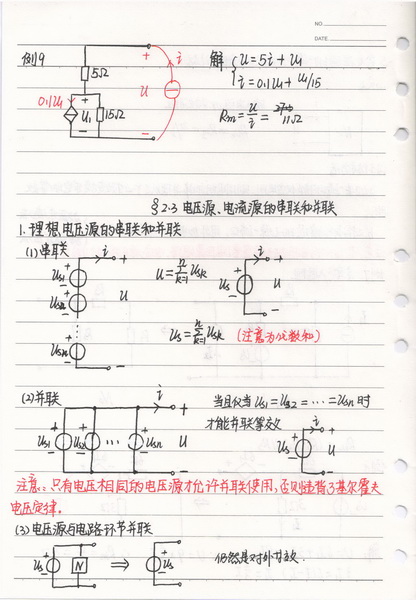 NO.
DATE
例9
5Ω
0.1U₁
+
U₁
-
15Ω
+
U
-
i
解 { U=5i+U₁
i=0.1U₁+U₁/15
Rin=U/i=
11Ω
§2-3 电压源、电流源的串联和并联
1.理想电压源的串联和并联
(1)串联
Us1
Us2
Usn
i
+
U
-
U=∑ⁿₖ₌₁Usk
Us=∑ⁿₖ₌₁Usk (注意为代数和)
Us
i
+
U
-
(2)并联
Us1 Us2 … Usn
i
+
U
-
当且仅当 Us1=Us2=……=Usn 时
才能并联等效
Us
i
+
U
-
注意:只有电压相同的电压源才允许并联使用,否则违背了基尔霍夫
电压定律。
(3)电压源与电路环节并联
Us N ⇒ Us
仍然是对外等效.